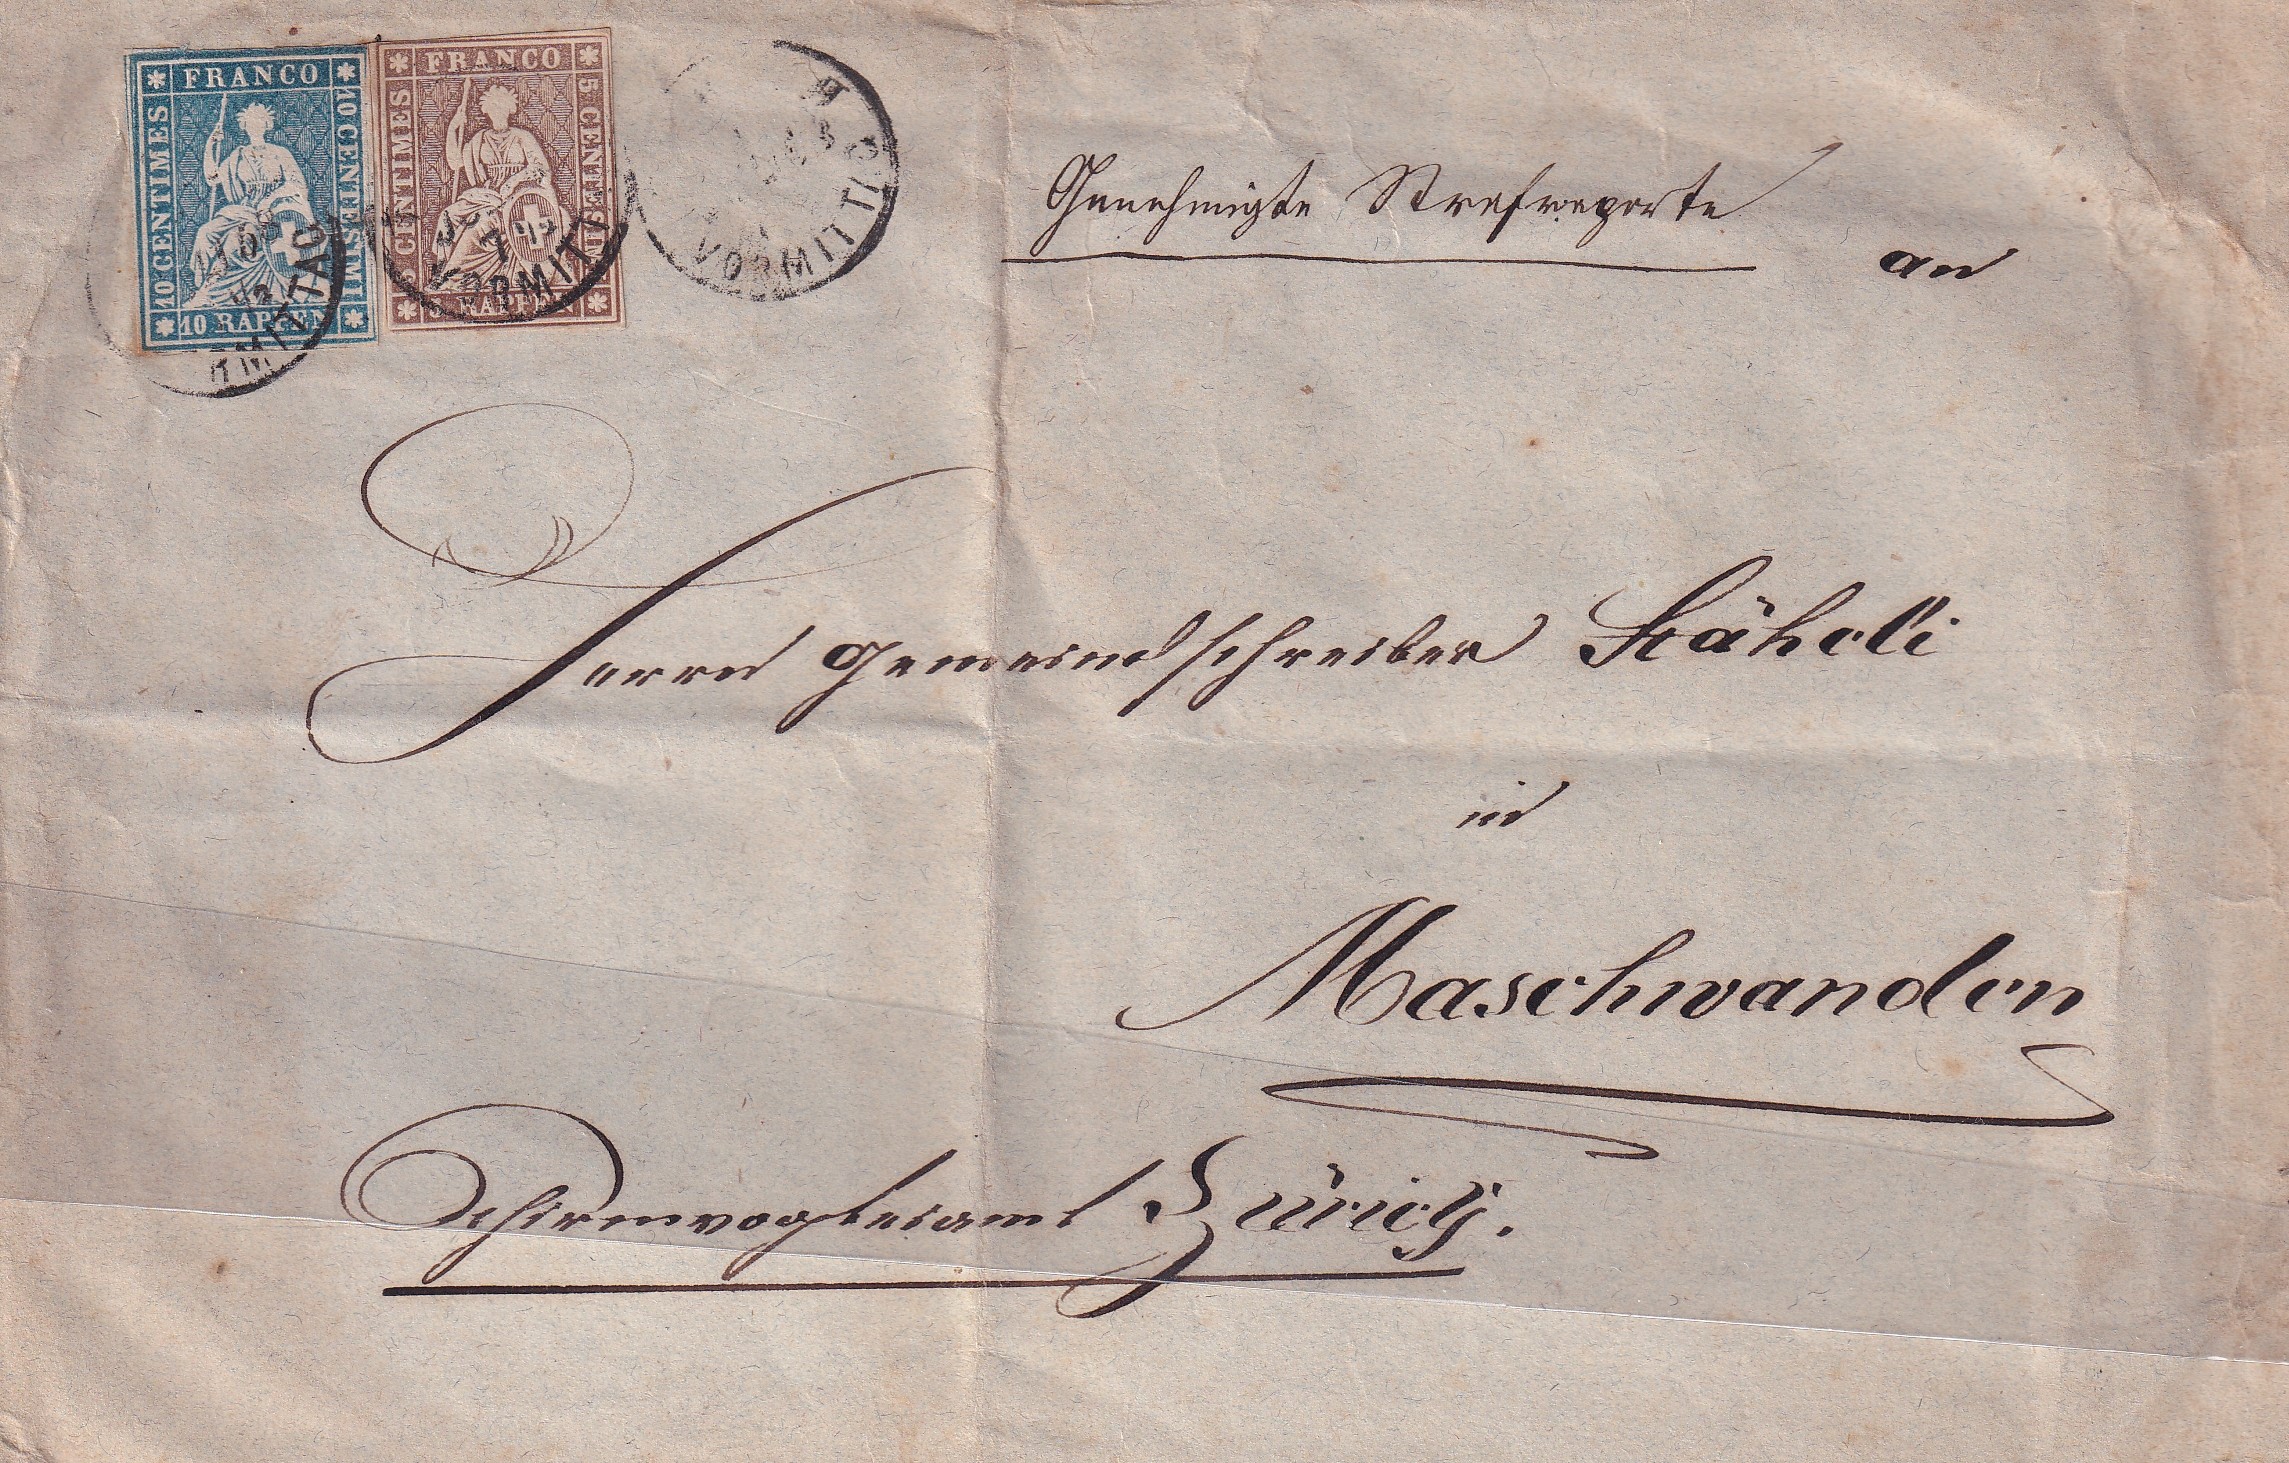 FRANCO
10 CENTIMES
10 CENTESIMI
10 RAPPEN
FRANCO
5 CENTIMES
5 CENTESIMI
5 RAPPEN
VORMITTAG
VORMITT
VORMITTAG
Genehmigte Strafrapporte
an
Herrn Gemeindschreiber Stäheli
in
Maschwanden
Schirmvogteiamt Zürich.